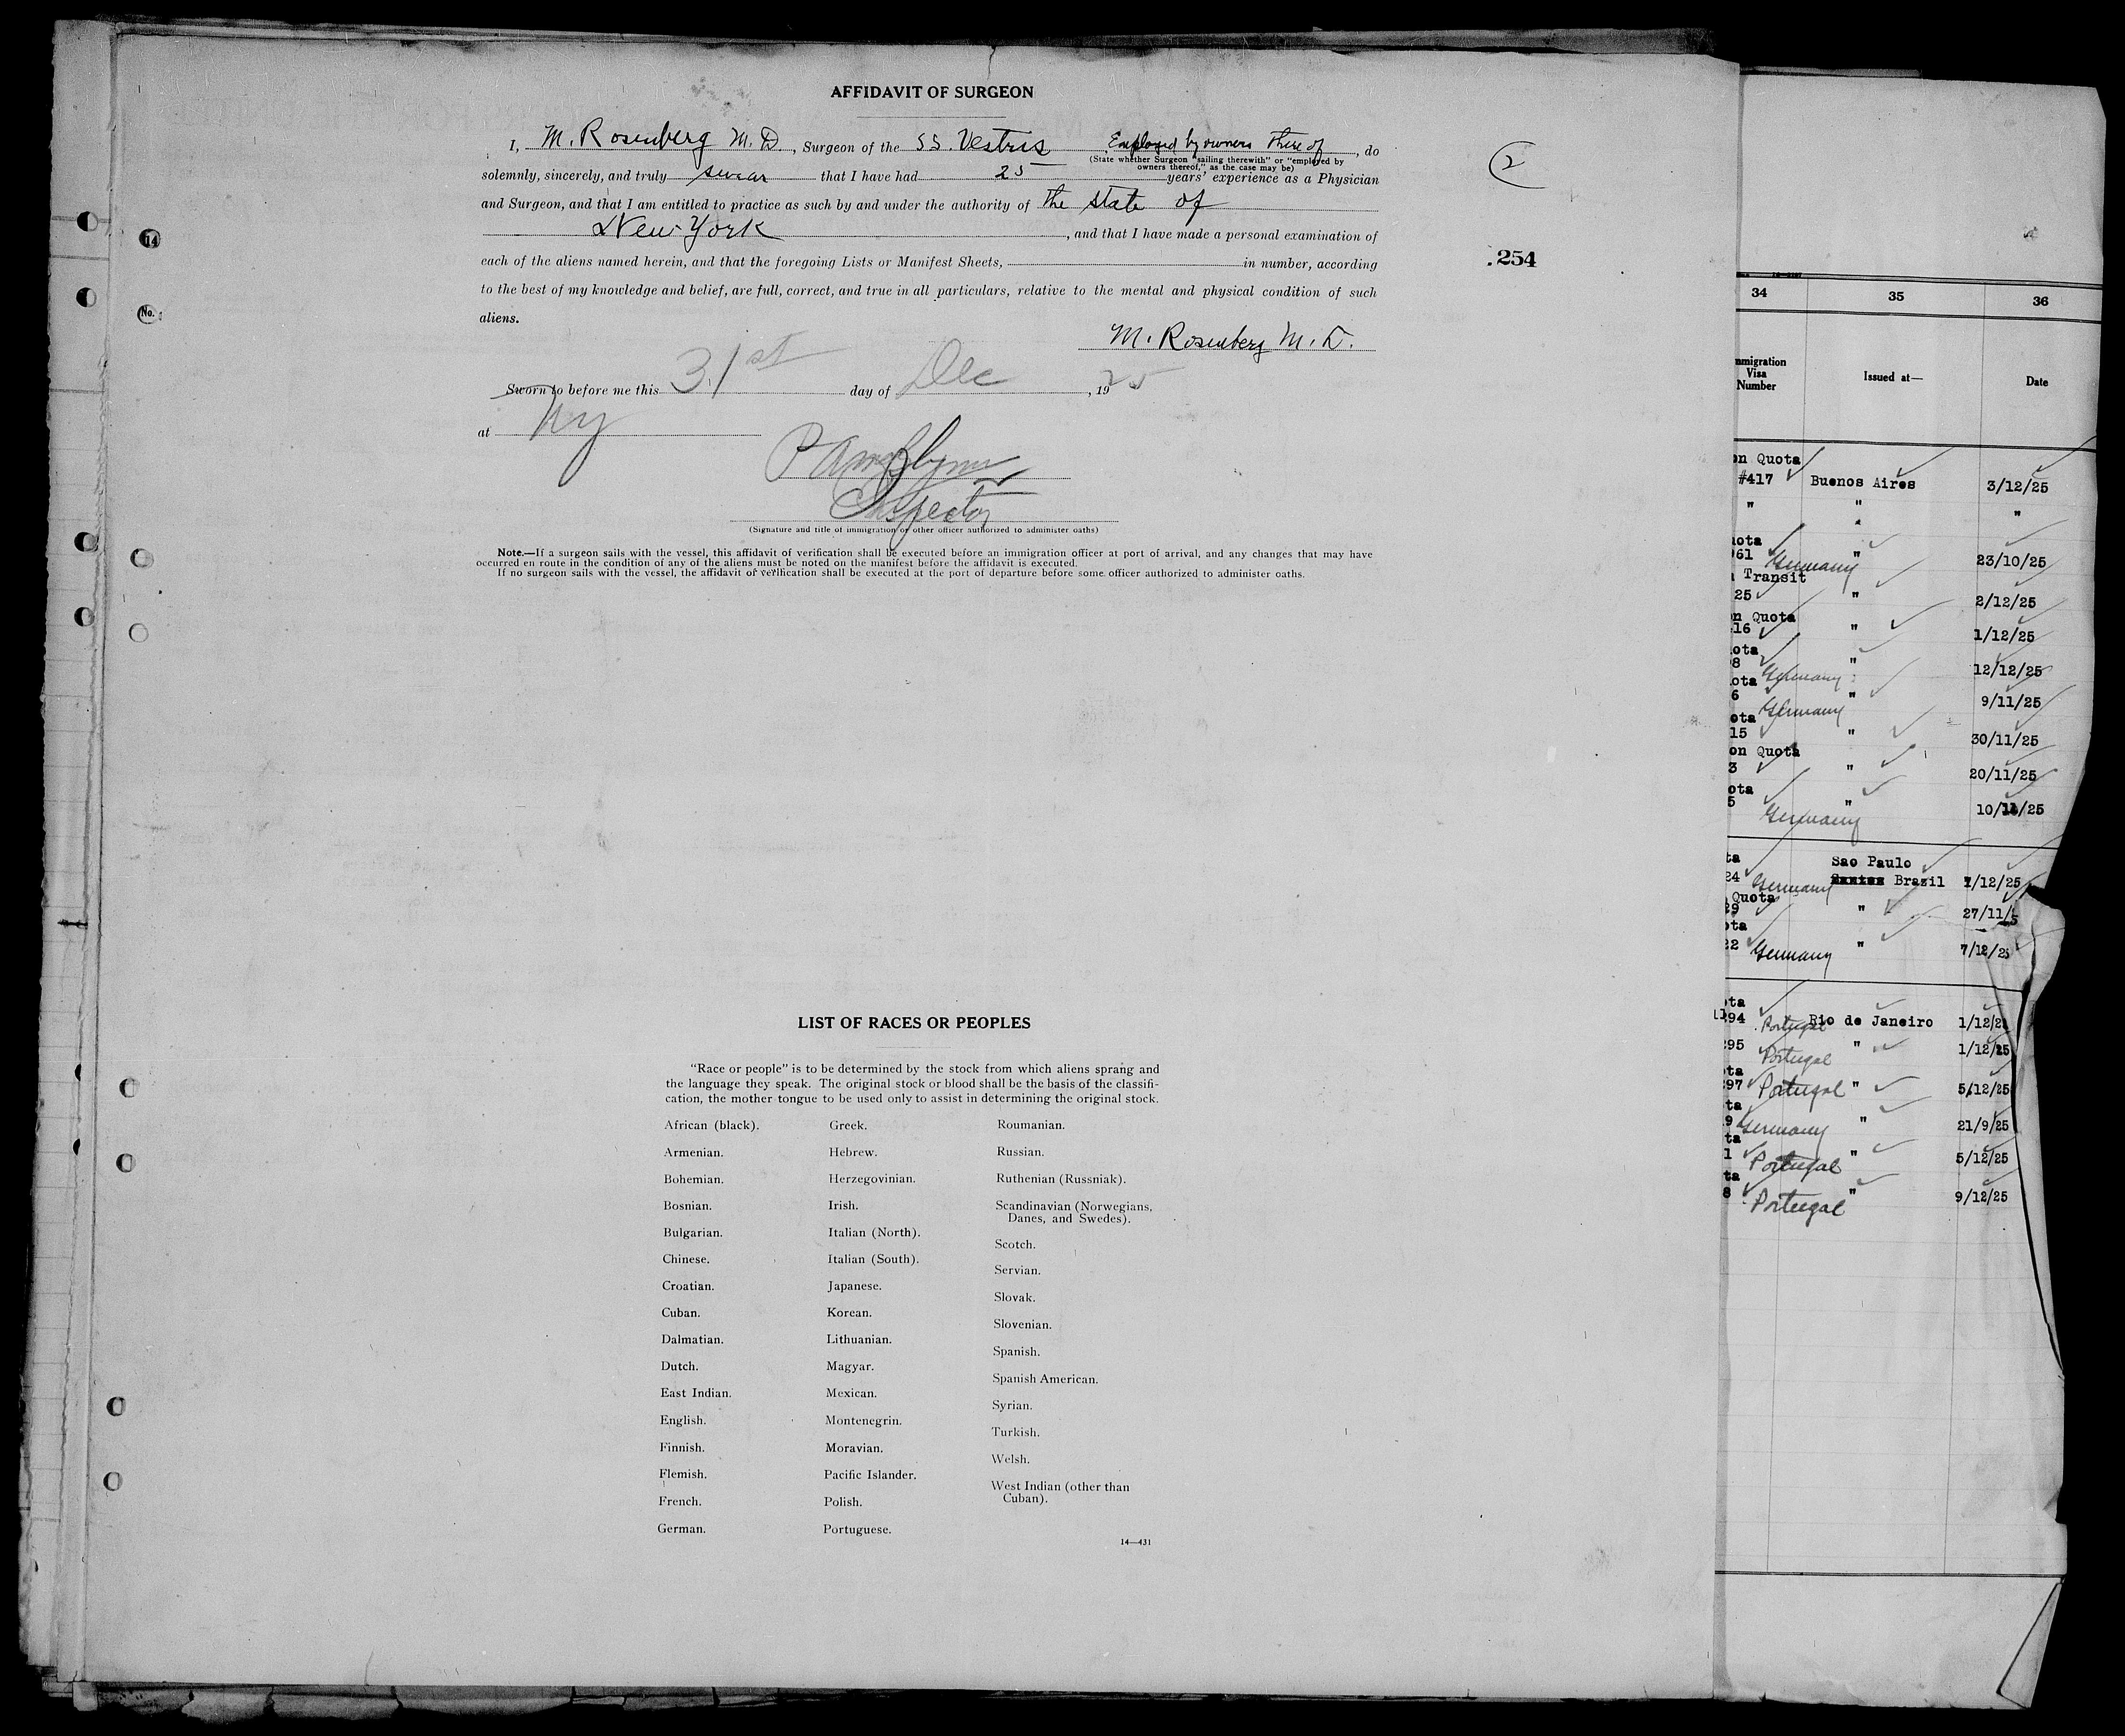 AFFIDAVIT OF SURGEON
I, M. Rosenberg M.D., Surgeon of the SS. Vestris Employed by owners there of, do
(State whether Surgeon "sailing therewith" or "employed by
owners thereof," as the case may be)
solemnly, sincerely, and truly swear that I have had 25 years' experience as a Physician
and Surgeon, and that I am entitled to practice as such by and under the authority of the state of
New York, and that I have made a personal examination of
each of the aliens named herein, and that the foregoing Lists or Manifest Sheets, in number, according
to the best of my knowledge and belief, are full, correct, and true in all particulars, relative to the mental and physical condition of such
aliens.
M. Rosenberg M.D.
Sworn to before me this 31st day of Dec, 1925
at NY
Inspector
(Signature and title of immigration or other officer authorized to administer oaths)
Note.—If a surgeon sails with the vessel, this affidavit of verification shall be executed before an immigration officer at port of arrival, and any changes that may have
occurred en route in the condition of any of the aliens must be noted on the manifest before the affidavit is executed.
If no surgeon sails with the vessel, the affidavit of verification shall be executed at the port of departure before some officer authorized to administer oaths.
2
254
14
No.
LIST OF RACES OR PEOPLES
"Race or people" is to be determined by the stock from which aliens sprang and
the language they speak. The original stock or blood shall be the basis of the classifi-
cation, the mother tongue to be used only to assist in determining the original stock.
African (black).
Armenian.
Bohemian.
Bosnian.
Bulgarian.
Chinese.
Croatian.
Cuban.
Dalmatian.
Dutch.
East Indian.
English.
Finnish.
Flemish.
French.
German.
Greek.
Hebrew.
Herzegovinian.
Irish.
Italian (North).
Italian (South).
Japanese.
Korean.
Lithuanian.
Magyar.
Mexican.
Montenegrin.
Moravian.
Pacific Islander.
Polish.
Portuguese.
Roumanian.
Russian.
Ruthenian (Russniak).
Scandinavian (Norwegians,
Danes, and Swedes).
Scotch.
Servian.
Slovak.
Slovenian.
Spanish.
Spanish American.
Syrian.
Turkish.
Welsh.
West Indian (other than
Cuban).
14—431
34 35 36
mmigration
Visa
Number
Issued at—
Date
on Quota
#417 Buenos Aires 3/12/25
" " "
uota
961 Germany " 23/10/25
n Transit
25 " 2/12/25
on Quota
416 " 1/12/25
ota
8 Germany " 12/12/25
ota
6 Germany " 9/11/25
ota
15 " 30/11/25
on Quota
3 " 20/11/25
ota
5 Germany " 10/11/25
ta Sao Paulo
24 Germany Brazil 1/12/25
Quota
29 " 27/11/5
ota
22 Germany " 7/12/25
ota
294 Portugal Rio de Janeiro 1/12/25
295 Portugal " 1/12/25
ota
297 Portugal " 5/12/25
ta
9 Germany " 21/9/25
ta
1 Portugal " 5/12/25
ta
8 Portugal " 9/12/25